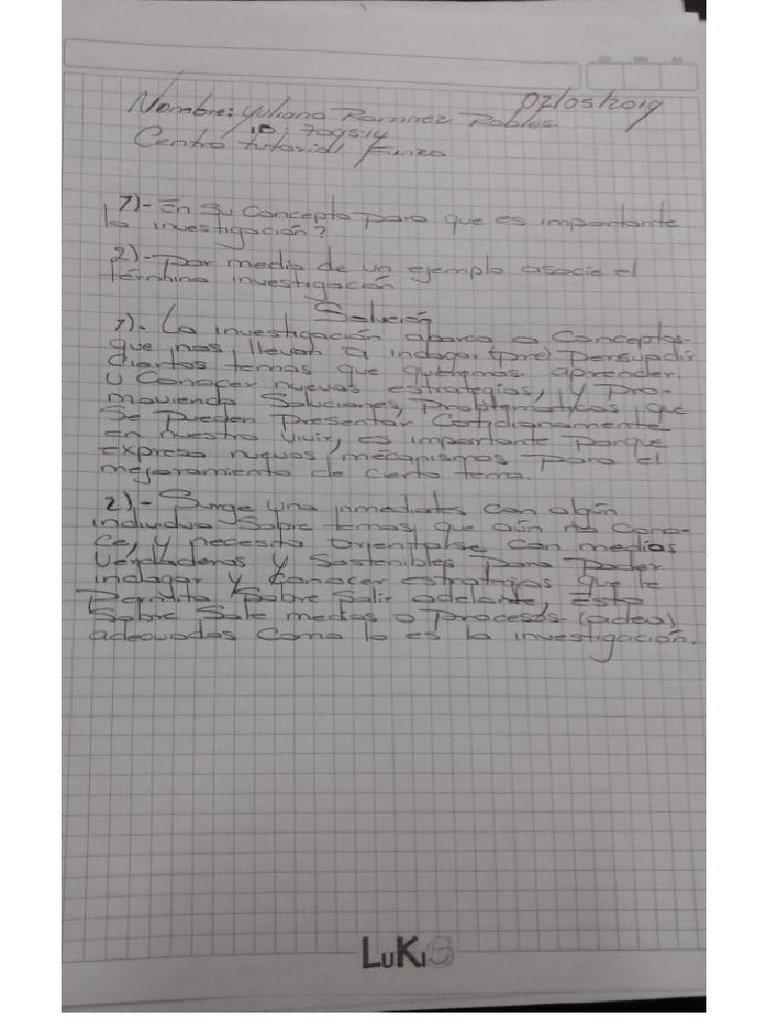 02/05/2019
Nombre: Yuliana Ramirez Robles.
ID 709514
Centro tutorial, Funza
1)- En su concepto para que es importante
la investigación?
2)- Por medio de un ejemplo asocie el
término investigación
Solución
1)- La investigación abarca a conceptos
que nos llevan a indagar (pre) persuadir
ciertos temas que queremos aprender
y conocer nuevas estrategias, y pro-
moviendo soluciones, problematicas, que
se pueden presentar cotidianamente
en nuestro vivir, es importante porque
expresa nuevos mecanismos para el
mejoramiento de cierto tema.
2)- Surge una con algún
individuo sobre temas que aún no cono-
ce, y necesita orientarse con medios
verdaderos y sostenibles para poder
indagar y conocer estratejias que le
permita sobre salir adelante, esto
sobre sale medios o procesos
adecuados como lo es la investigación.
LuKiS